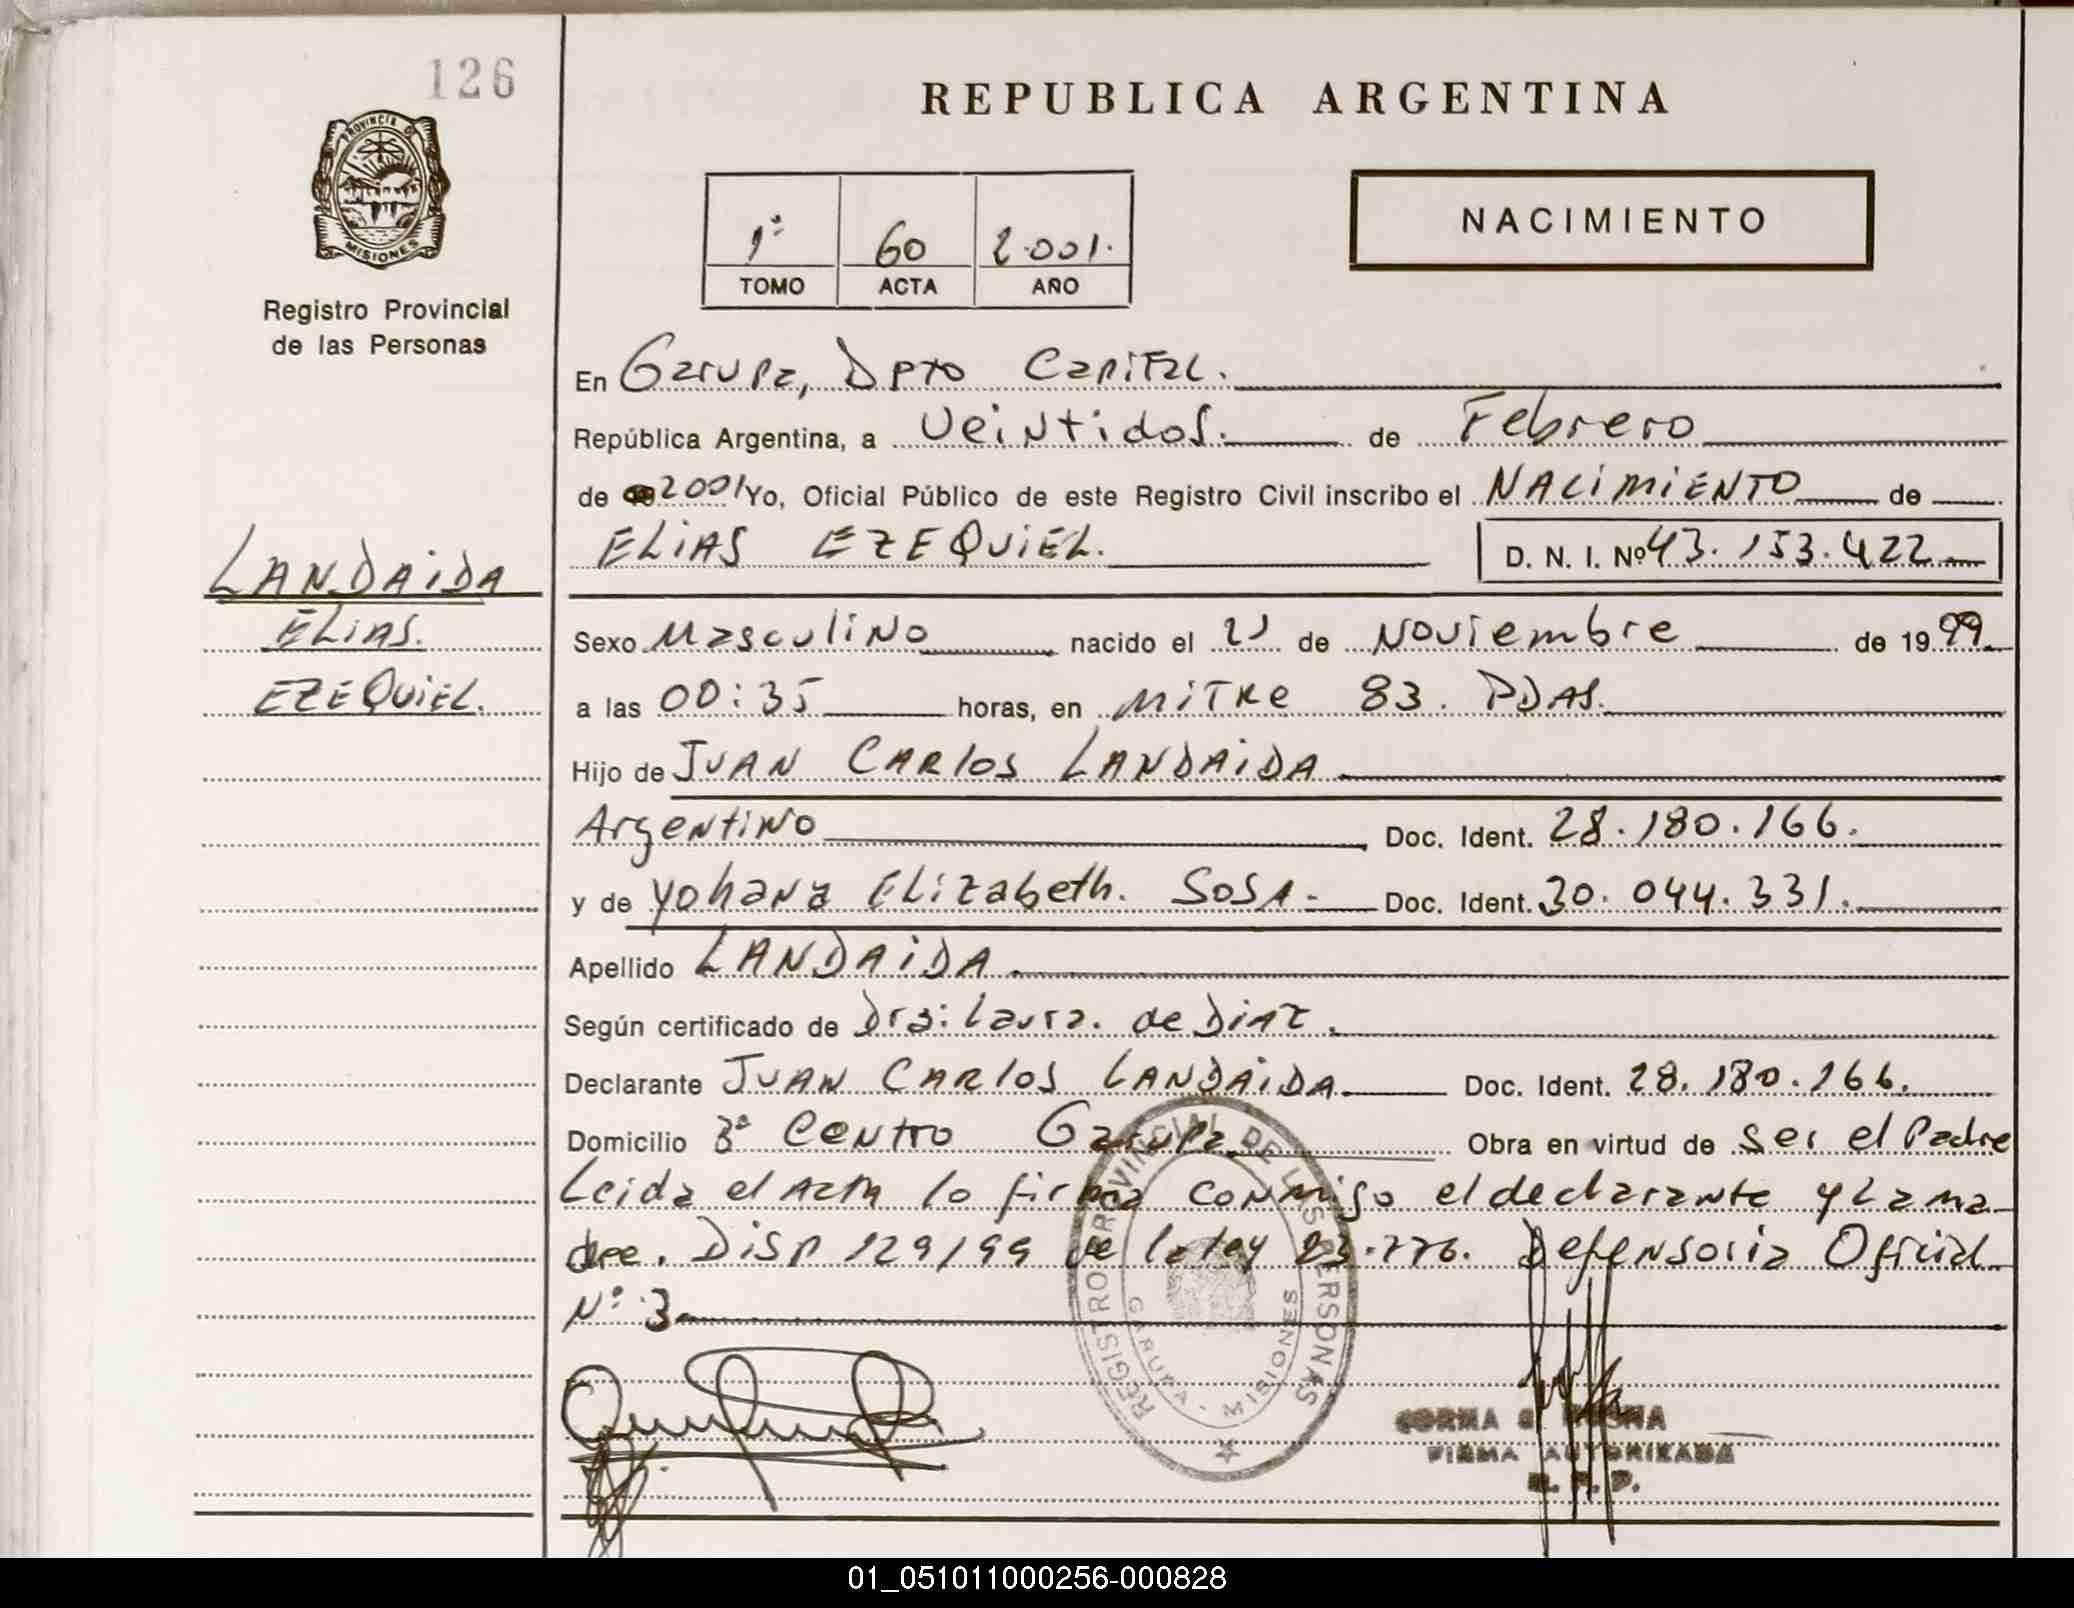 126
REPUBLICA ARGENTINA
PROVINCIA DE
MISIONES
Registro Provincial
de las Personas
1º 60 2.001.
TOMO ACTA AÑO
NACIMIENTO
En Garupa, Dpto Capital.
República Argentina, a Veintidos. de Febrero
de 2001 Yo, Oficial Público de este Registro Civil inscribo el NACIMIENTO de
ELIAS EZEQUIEL. D. N. I. Nº 43.153.422
LANDAIDA
ELIAS.
EZEQUIEL.
Sexo Masculino nacido el 21 de Noviembre de 1999
a las 00:35 horas, en MITRE 83. PDAS.
Hijo de JUAN CARlos LANDAIDA
Argentino Doc. Ident. 28.180.166.
y de Yohana Elizabeth. SOSA- Doc. Ident. 30.044.331.
Apellido LANDAIDA
Según certificado de Dra: Laura. de Diaz.
Declarante JUAN CARlos LANDAIDA Doc. Ident. 28.180.166.
Domicilio Bº Centro Garupa Obra en virtud de ser el Padre
Leida el Acta lo firma conmigo el declarante y La ma
dre. Disp 129/99 de la ley 23.776. Defensoria Oficial
Nº 3
REGISTRO PROVINCIAL DE LAS PERSONAS
GARUPA - MISIONES
FIRMA AUTORIZADA
01_051011000256-000828